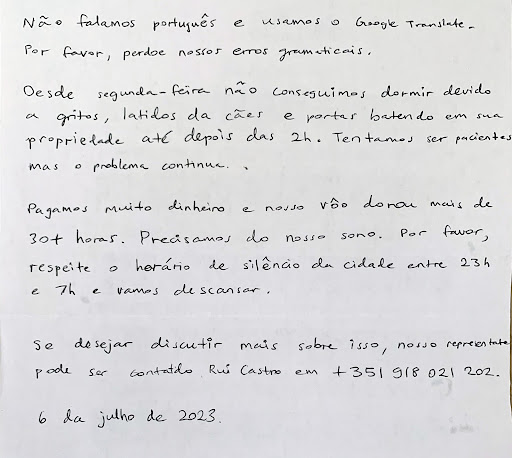 Não falamos português e usamos o Google Translate.
Por favor, perdoe nossos erros gramaticais.
Desde segunda-feira não conseguimos dormir devido
a gritos, latidos da cães e portas batendo em sua
propriedade até depois das 2h. Tentamos ser pacientes
mas o problema continua. .
Pagamos muito dinheiro e nosso vôo dorou mais de
30+ horas. Precisamos do nosso sono. Por favor,
respeite o horário de silêncio da cidade entre 23h
e 7h e vamos descansar.
Se desejar discutir mais sobre isso, nosso representate
pode ser contatdo Rui Castro em +351 918 021 202.
6 da julho de 2023.